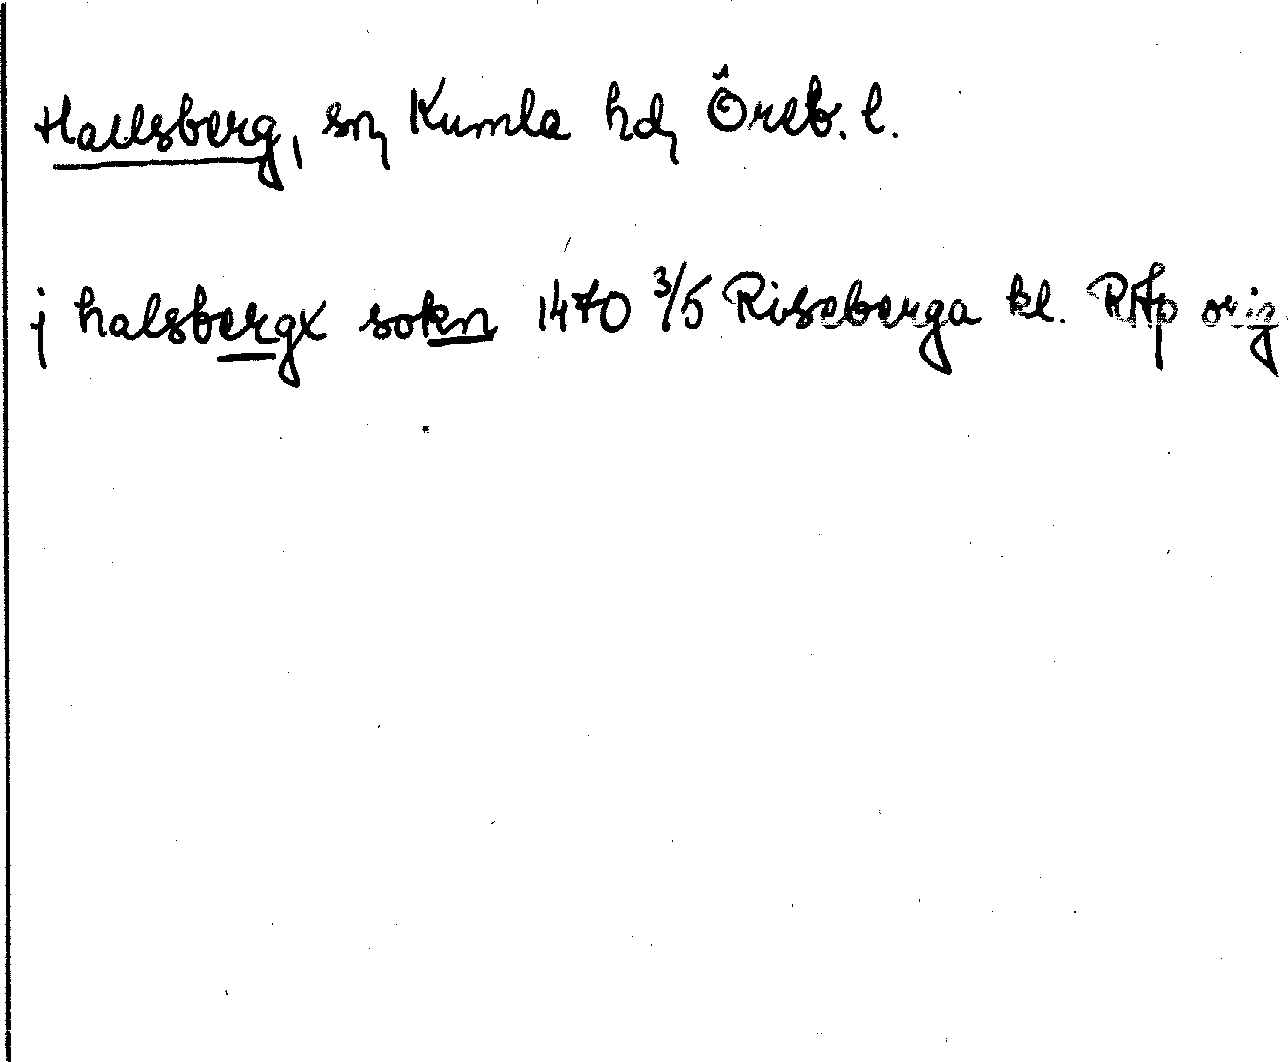 Hallsberg, sn, Kumla hd, Öreb. l.
j halsbergx sokn 1470 3/5 Riseberga kl. RAp orig